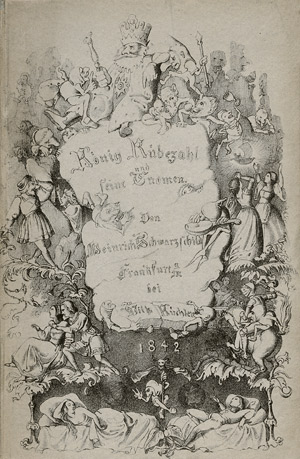 König Rübezahl
und
seine Gnomen.
Von
Heinrich Schwarzschild
Frankfurt a/M
bei
1842